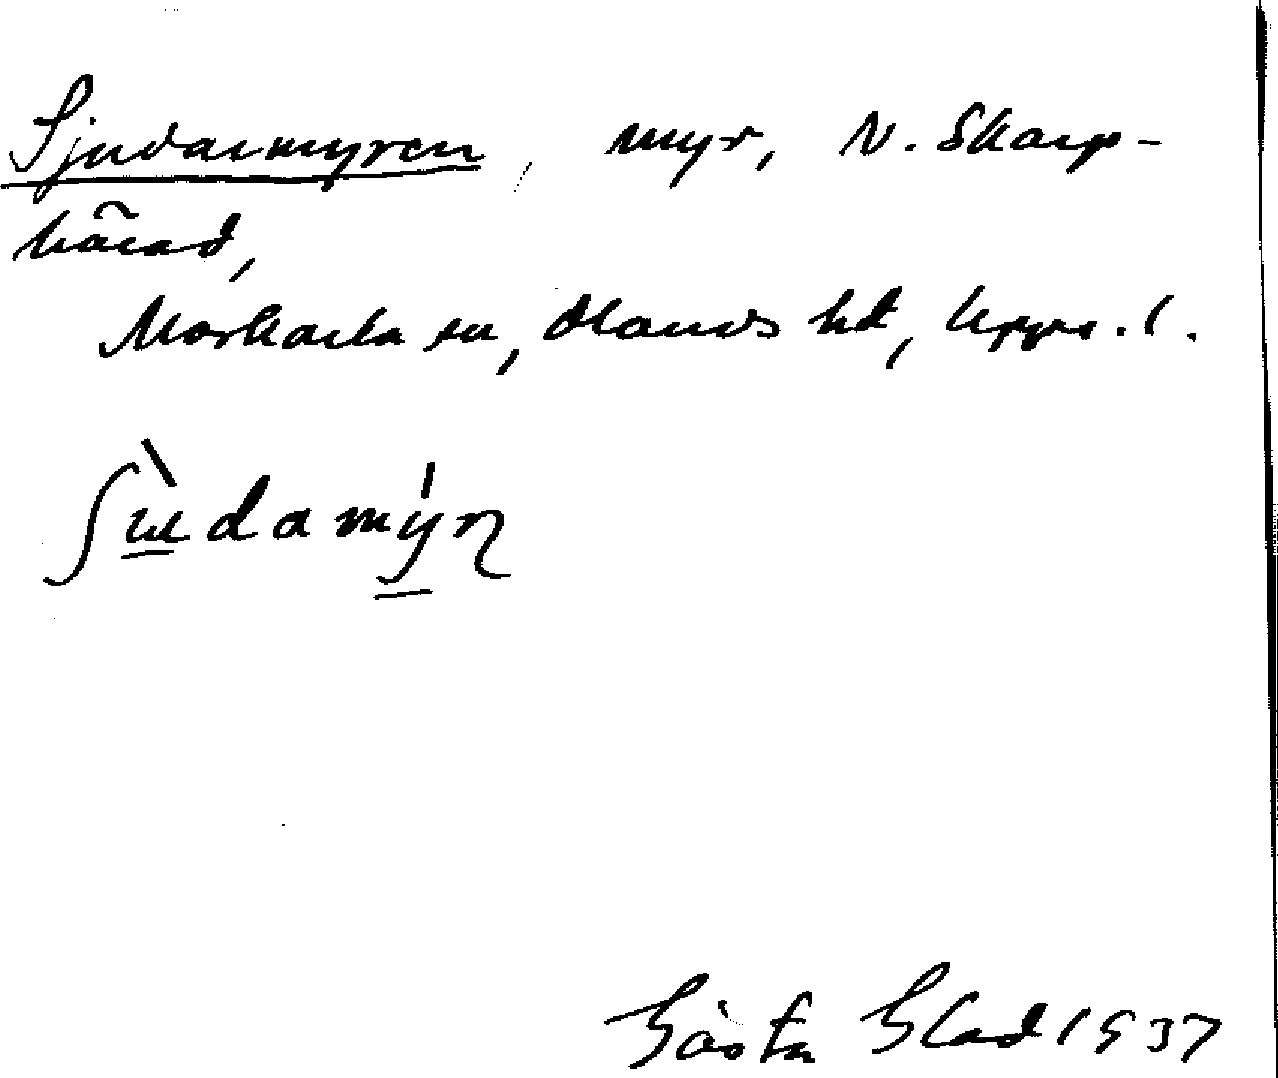 Sjudarmyren, myr, N. Skarp-
hårad,
Morkarla sn, Olands hd, Upps. l.
ʃɯ̀damýn
Gösta Glad 1937